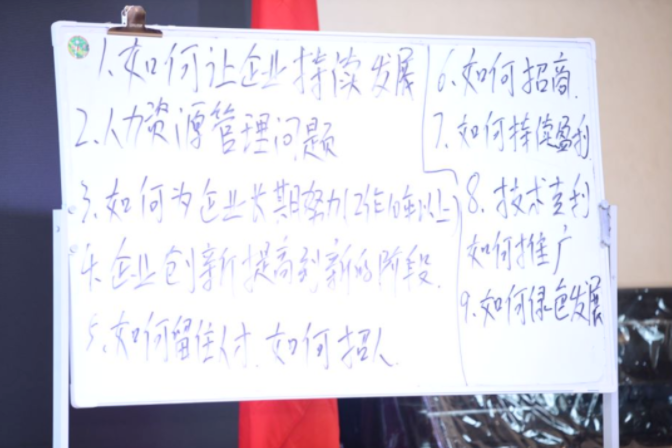 1、如何让企业持续发展
2、人力资源管理问题
3、如何为企业长期努力(工作10年以上)
4、企业创新提高到新的阶段.
5、如何留住人才、如何招人
6、如何招商.
7、如何持续盈利
8、技术专利
如何推广
9、如何绿色发展